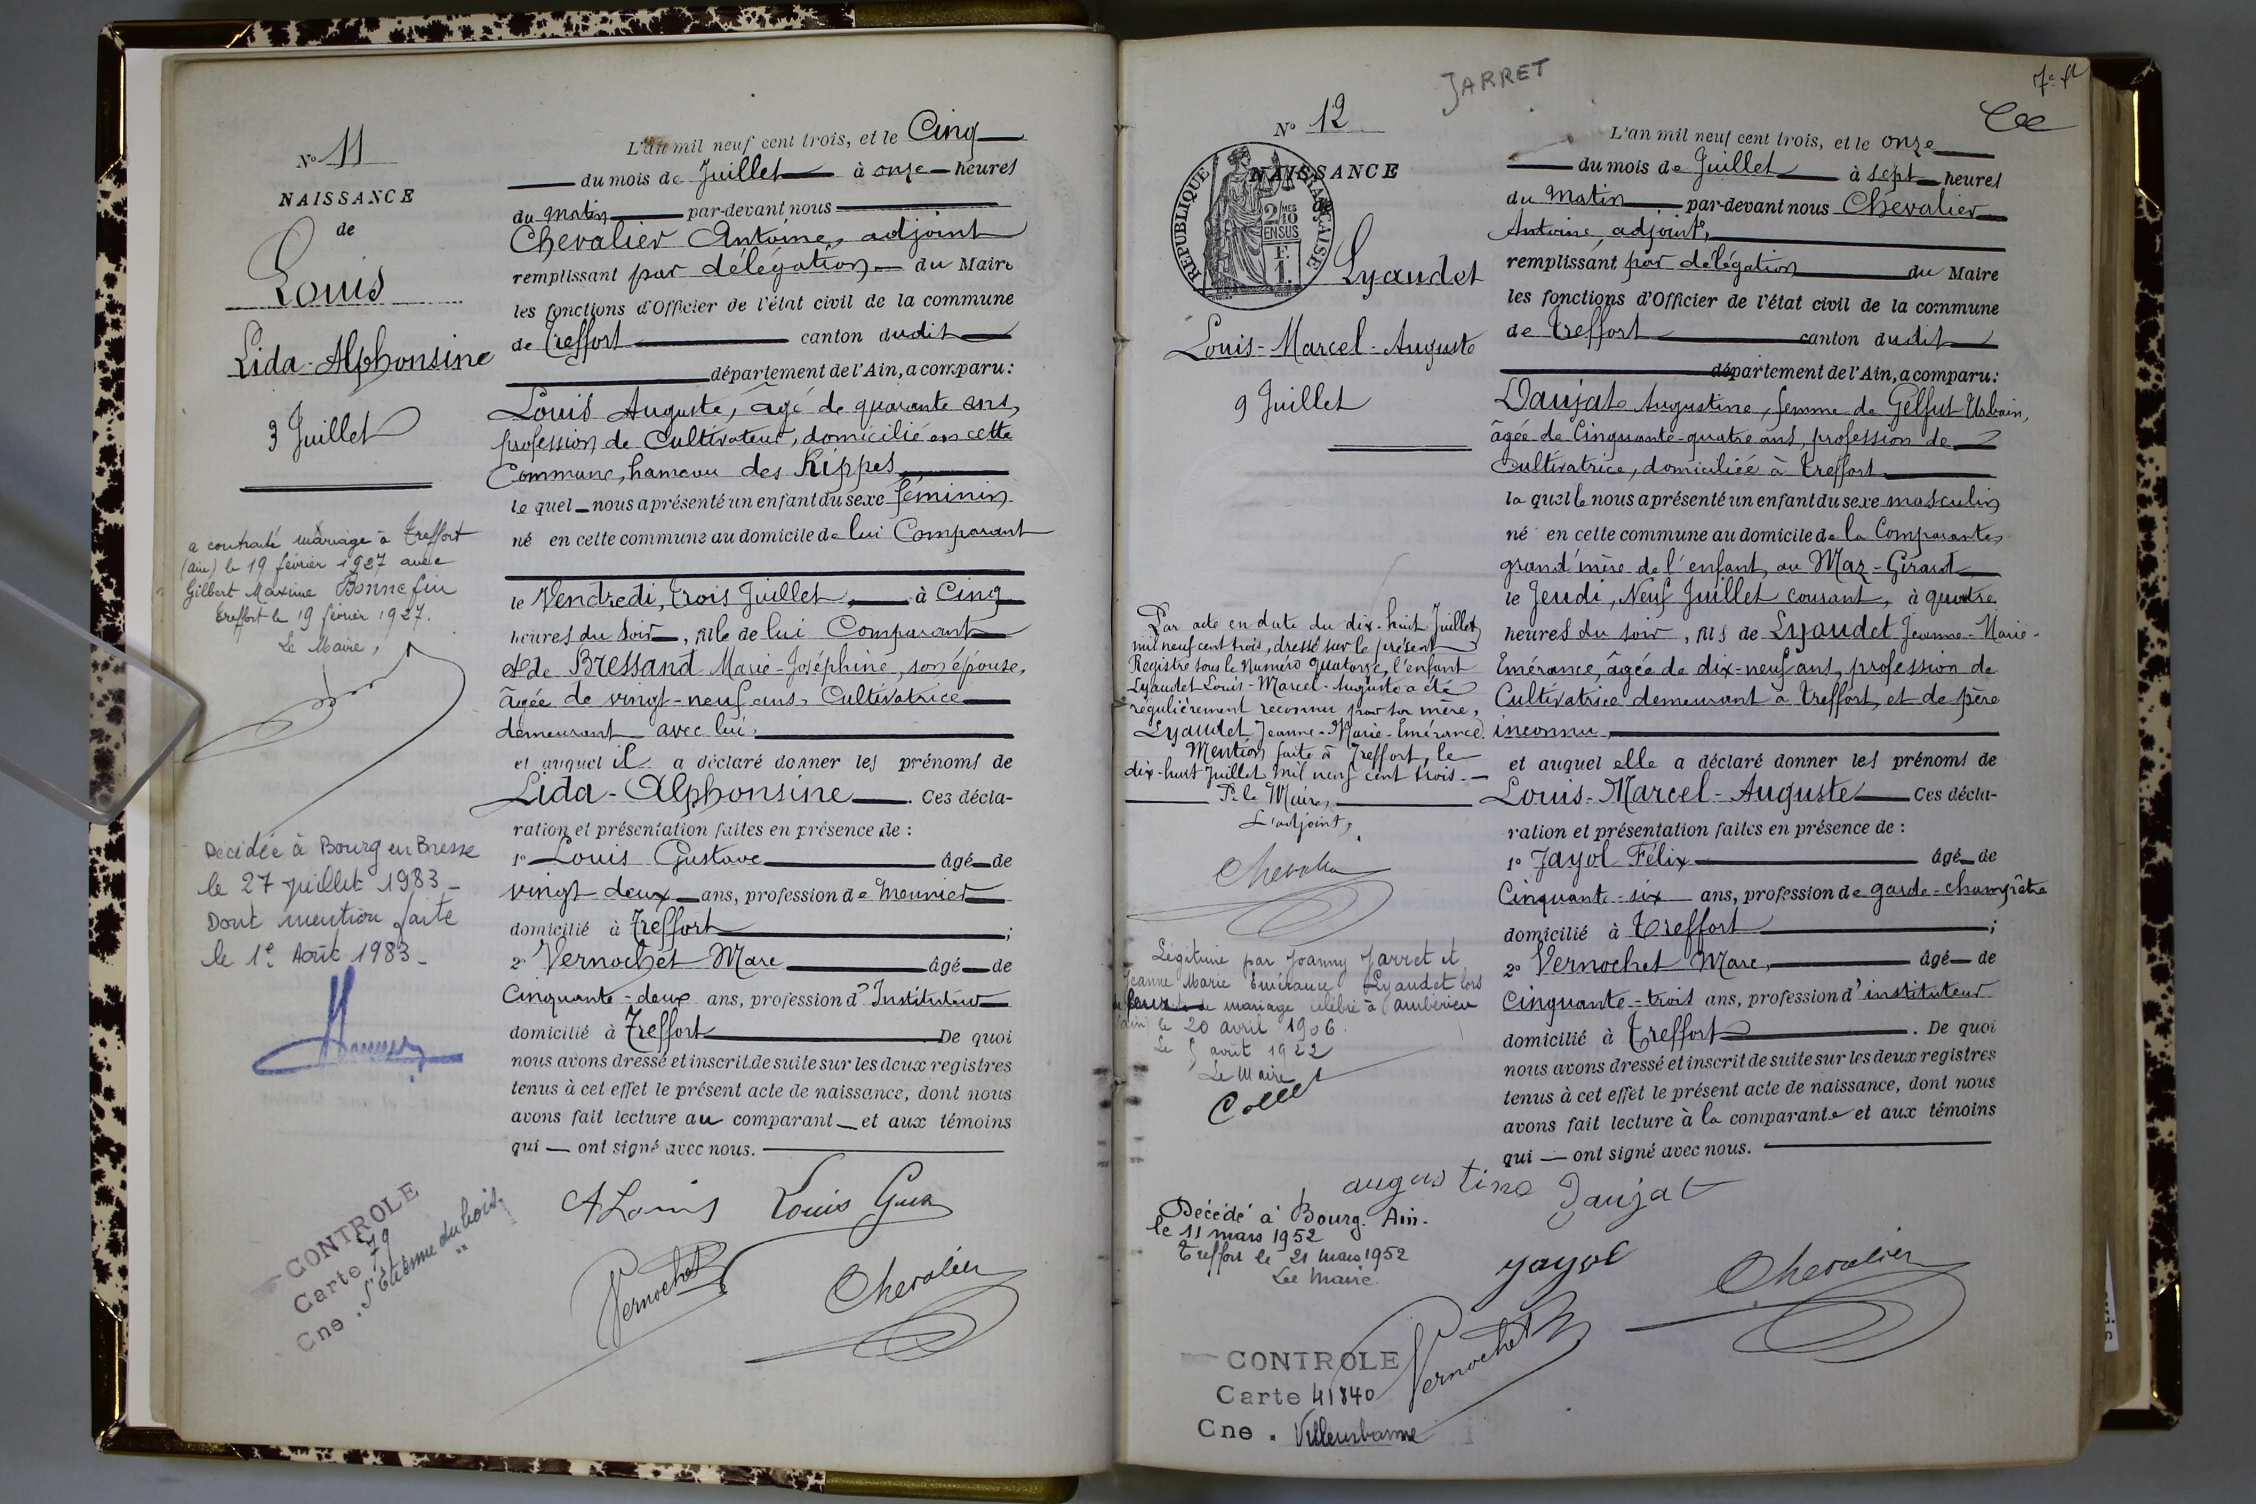 N° 11
NAISSANCE
de
Louis
Lida-Alphonsine
3 Juillet
a contracté mariage à Treffort
(ain) le 19 février 1927 avec
Gilbert Maxime Bonnefin
Treffort le 19 février 1927.
Le Maire,
Décédée à Bourg en Bresse
le 27 juillet 1983
Dont mention faite
le 1er Août 1983
CONTROLE
Carte 79
Cne. St Etienne du bois
L'an mil neuf cent trois, et le Cinq
du mois de Juillet à onze heures
du matin par-devant nous
Chevalier Antoine, adjoint
remplissant par délégation du Maire
les fonctions d'Officier de l'état civil de la commune
de Treffort canton dudit
département de l'Ain, a comparu:
Louis Auguste, âgé de quarante ans,
profession de Cultivateur, domicilié en cette
Commune, hameau des Rippes,
lequel nous a présenté un enfant du sexe féminin
né en cette commune au domicile de lui Comparant
le Vendredi, trois Juillet, à Cinq
heures du soir, fille de lui Comparant
et de Bressand Marie-Joséphine, son épouse,
âgée de vingt-neuf ans, Cultivatrice
demeurant avec lui.
et auquel il a déclaré donner les prénoms de
Lida-Alphonsine. Ces décla-
ration et présentation faites en présence de :
1° Louis Gustave âgé de
vingt deux ans, profession de Meunier
domicilié à Treffort ;
2° Vernochet Marc âgé de
Cinquante-deux ans, profession d'Instituteur
domicilié à Treffort De quoi
nous avons dressé et inscrit de suite sur les deux registres
tenus à cet effet le présent acte de naissance, dont nous
avons fait lecture au comparant et aux témoins
qui ont signé avec nous.
A Louis Louis Gus
Vernochet Chevalier
JARRET
7e f
N° 12
NAISSANCE
de
REPUBLIQUE FRANÇAISE
2/10 MES
EN SUS
F.
1.
Lyaudet
Louis-Marcel-Auguste
9 Juillet
Par acte en date du dix-huit Juillet
mil neuf cent trois, dressé sur le présent
Registre sous le numéro quatorze, l'enfant
Lyaudet Louis-Marcel-Auguste a été
régulièrement reconnu par sa mère,
Lyaudet Jeanne-Marie-Emérance.
Mention faite à Treffort, le
dix-huit Juillet mil neuf cent trois.
P. le Maire,
L'adjoint,
Chevalier
Légitimé par Joanny Jarret et
Jeanne Marie Emérance Lyaudet lors
de leur mariage célébré à Ambérieu
(ain) le 20 avril 1906.
Le 5 août 1922
Le Maire
Collet
Décédé à Bourg. Ain.
le 11 mars 1952
Treffort le 21 mars 1952
Le Maire.
CONTROLE
Carte 41840
Cne. Villeurbanne
L'an mil neuf cent trois, et le onze
du mois de Juillet à sept heures
du Matin par-devant nous Chevalier
Antoine, adjoint,
remplissant par délégation du Maire
les fonctions d'Officier de l'état civil de la commune
de Treffort canton dudit
département de l'Ain, a comparu:
Daujat Augustine, femme de Gelfut Urbain,
âgée de Cinquante-quatre ans, profession de
Cultivatrice, domiciliée à Treffort
laquelle nous a présenté un enfant du sexe masculin
né en cette commune au domicile de la Comparante,
grand'mère de l'enfant, au Maz-Girard
le Jeudi, Neuf Juillet courant, à quatre
heures du soir, fils de Lyaudet Jeanne-Marie-
Emérance, âgée de dix-neuf ans, profession de
Cultivatrice demeurant à Treffort, et de père
inconnu,
et auquel elle a déclaré donner les prénoms de
Louis-Marcel-Auguste Ces décla-
ration et présentation faites en présence de :
1° Jayol Félix âgé de
Cinquante-six ans, profession de garde-champêtre
domicilié à Treffort ;
2° Vernochet Marc, âgé de
Cinquante-trois ans, profession d'instituteur
domicilié à Treffort. De quoi
nous avons dressé et inscrit de suite sur les deux registres
tenus à cet effet le présent acte de naissance, dont nous
avons fait lecture à la comparante et aux témoins
qui ont signé avec nous.
augustine Daujat
Jayol
Vernochet Chevalier